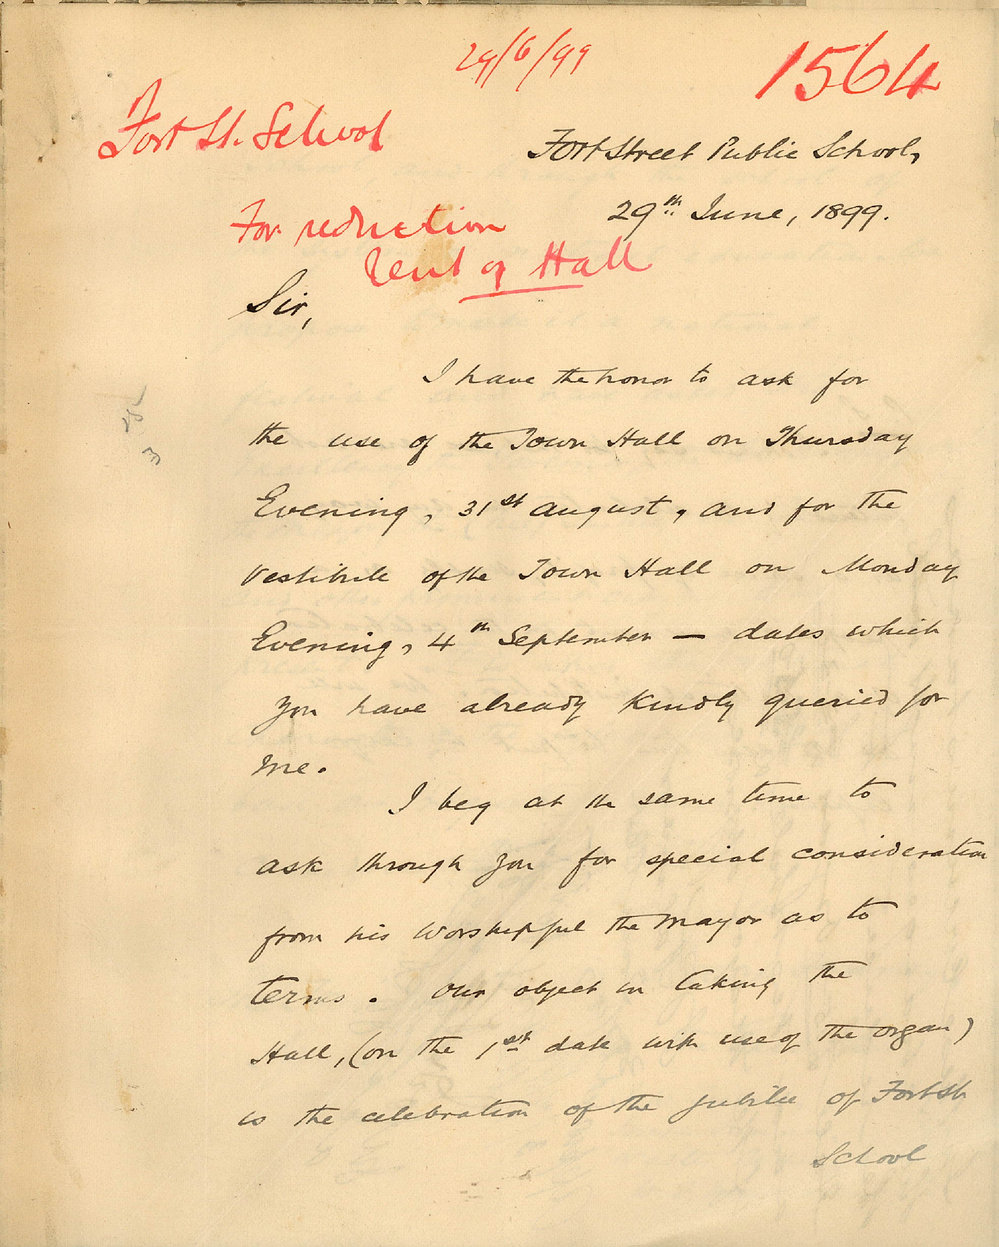 29/6/99
1564
Fort St. School
Fort Street Public School,
29th June, 1899.
For reduction
rent of Hall
Sir,
I have the honor to ask for
the use of the Town Hall on Thursday
Evening, 31st August, and for the
Vestibule of the Town Hall on Monday
Evening, 4th September — dates which
you have already kindly queried for
me.
I beg at the same time to
ask through you for special consideration
from his Worshipful the Mayor as to
terms. Our object in taking the
Hall, (on the 1st date with use of the organ)
is the celebration of the Jubilee of Fort St
School